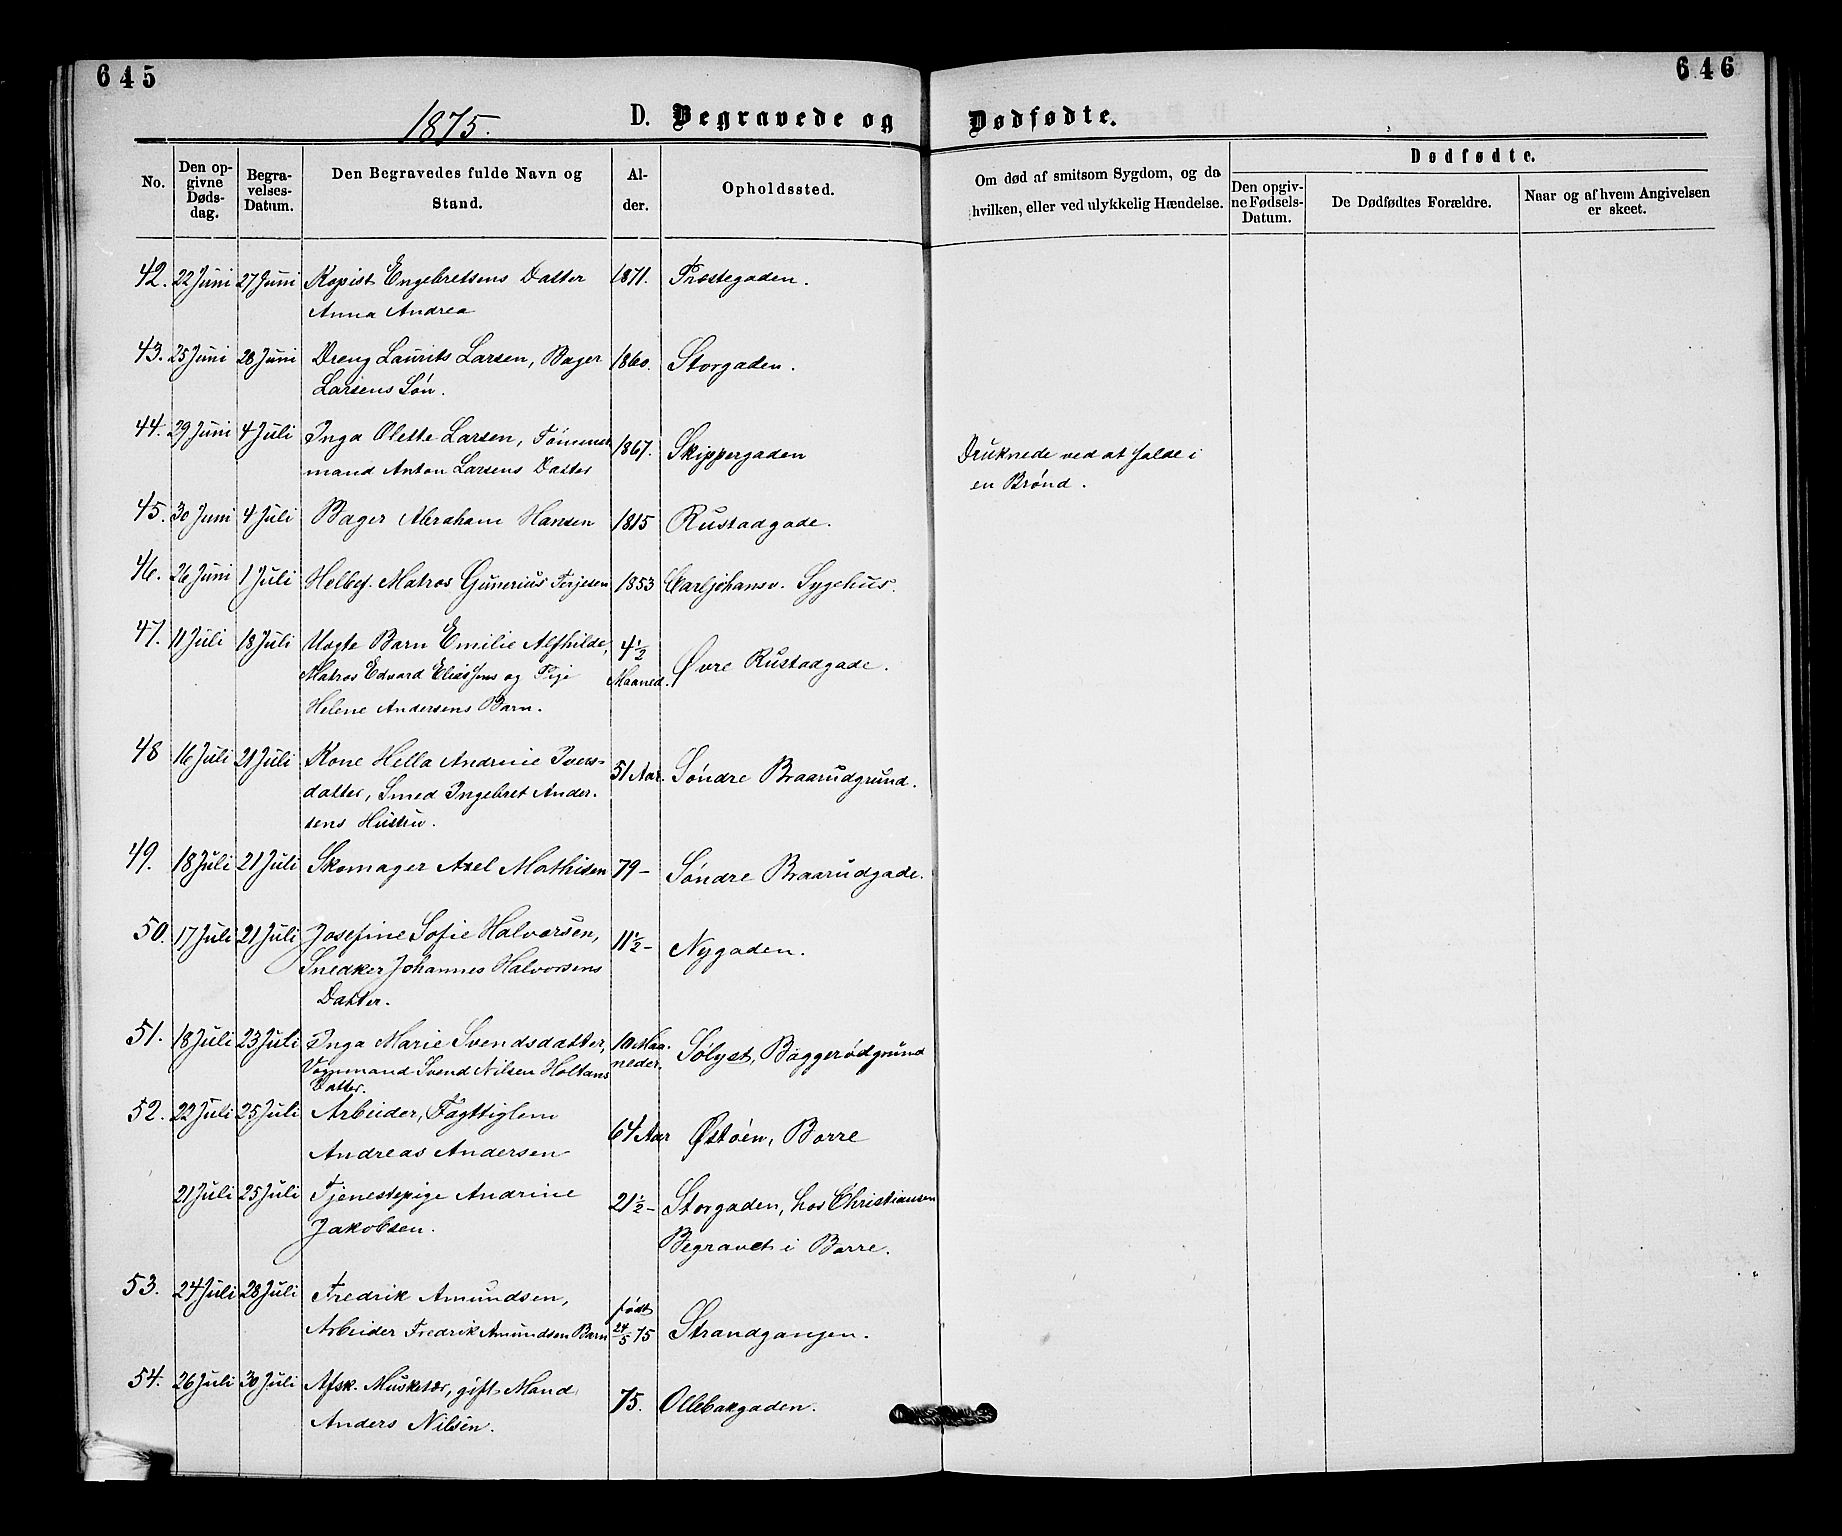 645
646
1875.
D. Begravede og Dødfødte.
No.
Den op-
givne
Døds-
dag.
Begra-
velses-
Datum.
Den Begravedes fulde Navn og
Stand.
Al-
der.
Opholdssted.
Om død af smitsom Sygdom, og da
hvilken, eller ved ulykkelig Hændelse.
Dødfødte.
Den opgiv-
ne Fødsels-
Datum.
De Dødfødtes Forældre.
Naar og af hvem Angivelsen
er skeet.
42. 22 Juni 27 Juni Kopist Engebretsens Datter 1871. Præstegaden.
Anna Andrea
43. 25 Juni 28 Juni Dreng Laurits Larsen, Bager 1860. Storgaden.
Larsens Søn.
44. 29 Juni 4 Juli Inga Olette Larsen, Tømmer 1867. Skippergaden Druknede ved at falde i
mand Anton Larsens Datter en Brønd.
45. 30 Juni 4 Juli Bager Abraham Hansen 1815 Rustadgade.
46. 26 Juni 1 Juli Helbef. Matros Gunerius Terjesen 1853 Carljohansv. Sygehus.
47. 11 Juli 18 Juli Uægte Barn Emilie Alfhilde, 4 1/2
Matros Edvard Eliassens og Pige Maaned. Øvre Rustadgade.
Helene Andersens Barn.
48 16 Juli 21 Juli Kone Hella Andrine Ivers- 51 Aar. Søndre Braarudgrund.
datter, Smed Ingebret Ander-
sens Hustru.
49. 18 Juli 21 Juli Skomager Axel Mathisen 79 - Søndre Braarudgade.
50. 17 Juli 21 Juli Josefine Sofie Halvorsen, 11 1/2 - Nygaden.
Snedker Johannes Halvorsens
Datter.
51. 18 Juli 23 Juli Inga Marie Svendsdatter, 10 Maa- Sølyst, Baggerødgrund
Vognmand Svend Nilsen Holtans neder.
Datter.
52. 22 Juli 25 Juli Arbeider, Fattiglem 64 Aar Østøen, Borre
Andreas Andersen
21 Juli 25 Juli Tjenestepige Andrine 21 1/2 - Storgaden, hos Christiansen
Jakobsen. Begravet i Borre.
53. 24 Juli 28 Juli Fredrik Amundsen, født
Arbeider Fredrik Amundsen Barn 24/5 75 Strandgangen.
54. 26 Juli 30 Juli Afsk. Musketær, gift Mand 75. Ollebakgaden.
Anders Nilsen.